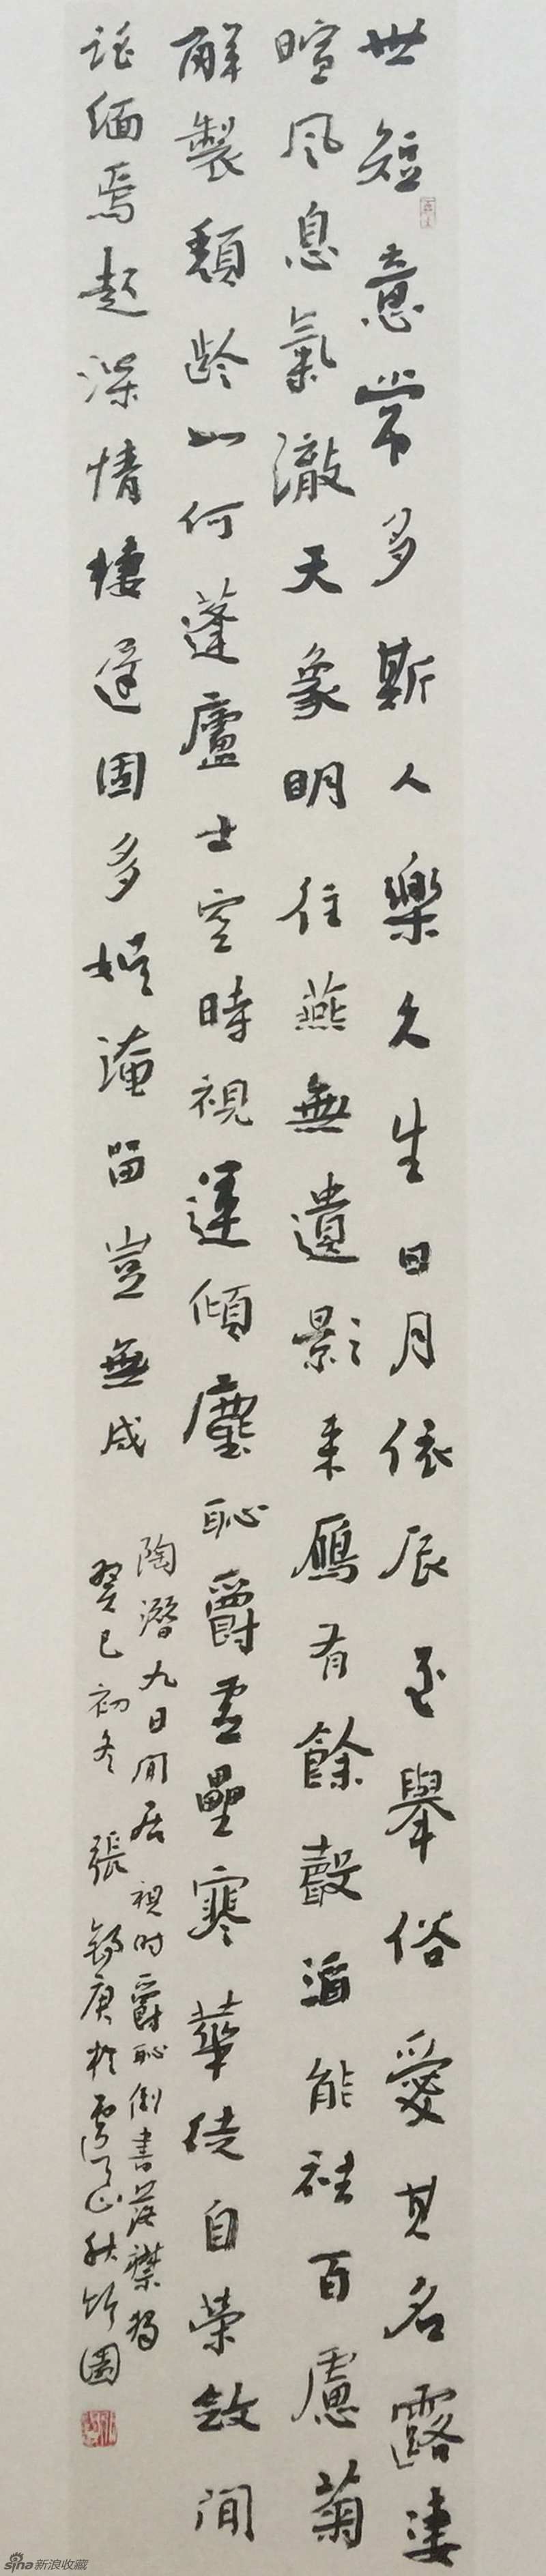 世短意常多斯人樂久生日月依辰至舉俗愛其名露淒
暄風息氣澈天象明往燕無遺影来鴈有餘聲酒能祛百慮菊
解製頹齡如何蓬廬士空時視運傾塵恥爵虛罍寒華徒自榮斂閒
謠緬焉起深情棲遲固多娛淹留豈無成
陶潛九日閒居視时爵恥倒書落襟獨
癸巳初冬 張錫庚於虞山秋竹園
sina新浪收藏